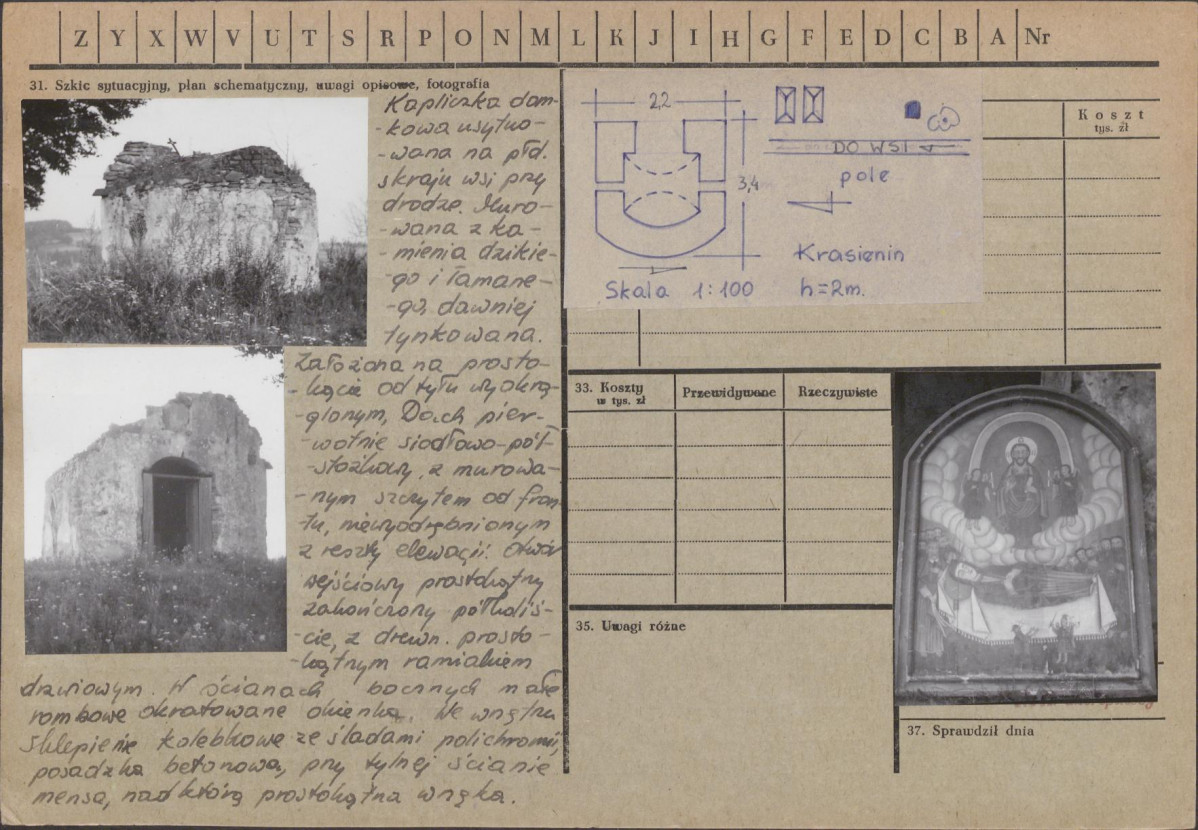 Z Y X W V U T S R P O N M L K J I H G F E D C B A Nr
31. Szkic sytuacyjny, plan schematyczny, uwagi opisowe, fotografia
Kapliczka dom-
-kowa usytuo-
-wana na płd.
skraju wsi przy
drodze. Muro-
-wana z ka-
-mienia dzikie-
-go i łamane-
-go, dawniej
tynkowana.
Założona na prosto-
-kącie od tyłu wyokrą-
-glonym, Dach pier-
-wotnie siodłowo-pół-
-stożkowy, z murowa-
-nym szczytem od fron-
-tu, niewyodrębnionym
z reszty elewacji. Otwór
wejściowy prostokątny
zakończony półkoliś-
-cie, z drewn. prosto-
-kątnym ramiakiem
drzwiowym. W ścianach bocznych małe
rombowe okratowane okienka. We wnętrzu
sklepienie kolebkowe ze śladami polichromii,
posadzka betonowa, przy tylnej ścianie
mensa, nad którą prostokątna wnęka.
2,2
3,4
DO WSI
pole
Krasienin
Skala 1:100 h=2m.
Koszt
tys. zł
33. Koszty
w tys. zł
Przewidywane
Rzeczywiste
35. Uwagi różne
37. Sprawdził dnia